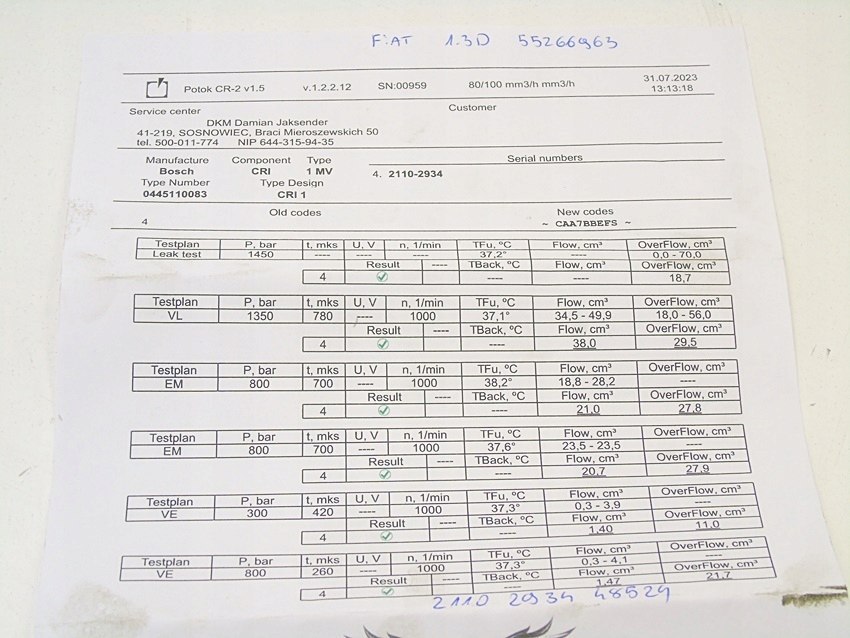 FiAT 1.3D 55266963
Potok CR-2 v1.5 v.1.2.2.12 SN:00959 80/100 mm3/h mm3/h 31.07.2023
13:13:18
Service center Customer
DKM Damian Jaksender
41-219, SOSNOWIEC, Braci Mieroszewskich 50
tel. 500-011-774 NIP 644-315-94-35
Manufacture Component Type Serial numbers
Bosch CRI 1 MV 4. 2110-2934
Type Number Type Design
0445110083 CRI 1
Old codes New codes
4 ~ CAA7BBEFS ~
Testplan P, bar t, mks U, V n, 1/min TFu, ºC Flow, cm³ OverFlow, cm³
Leak test 1450 ---- ---- ---- 37,2° ---- 0,0 - 70,0
Result ---- TBack, ºC Flow, cm³ OverFlow, cm³
4 ---- ---- 18,7
Testplan P, bar t, mks U, V n, 1/min TFu, ºC Flow, cm³ OverFlow, cm³
VL 1350 780 ---- 1000 37,1° 34,5 - 49,9 18,0 - 56,0
Result ---- TBack, ºC Flow, cm³ OverFlow, cm³
4 ---- 38,0 29,5
Testplan P, bar t, mks U, V n, 1/min TFu, ºC Flow, cm³ OverFlow, cm³
EM 800 700 ---- 1000 38,2° 18,8 - 28,2 ----
Result ---- TBack, ºC Flow, cm³ OverFlow, cm³
4 ---- 21,0 27,8
Testplan P, bar t, mks U, V n, 1/min TFu, ºC Flow, cm³ OverFlow, cm³
EM 800 700 ---- 1000 37,6° 23,5 - 23,5 ----
Result ---- TBack, ºC Flow, cm³ OverFlow, cm³
4 ---- 20,7 27,9
Testplan P, bar t, mks U, V n, 1/min TFu, ºC Flow, cm³ OverFlow, cm³
VE 300 420 ---- 1000 37,3° 0,3 - 3,9 ----
Result ---- TBack, ºC Flow, cm³ OverFlow, cm³
4 ---- 1,40 11,0
Testplan P, bar t, mks U, V n, 1/min TFu, ºC Flow, cm³ OverFlow, cm³
VE 800 260 ---- 1000 37,3° 0,3 - 4,1 ----
Result ---- TBack, ºC Flow, cm³ OverFlow, cm³
4 ---- 1,47 21,7
2110 2934 48524